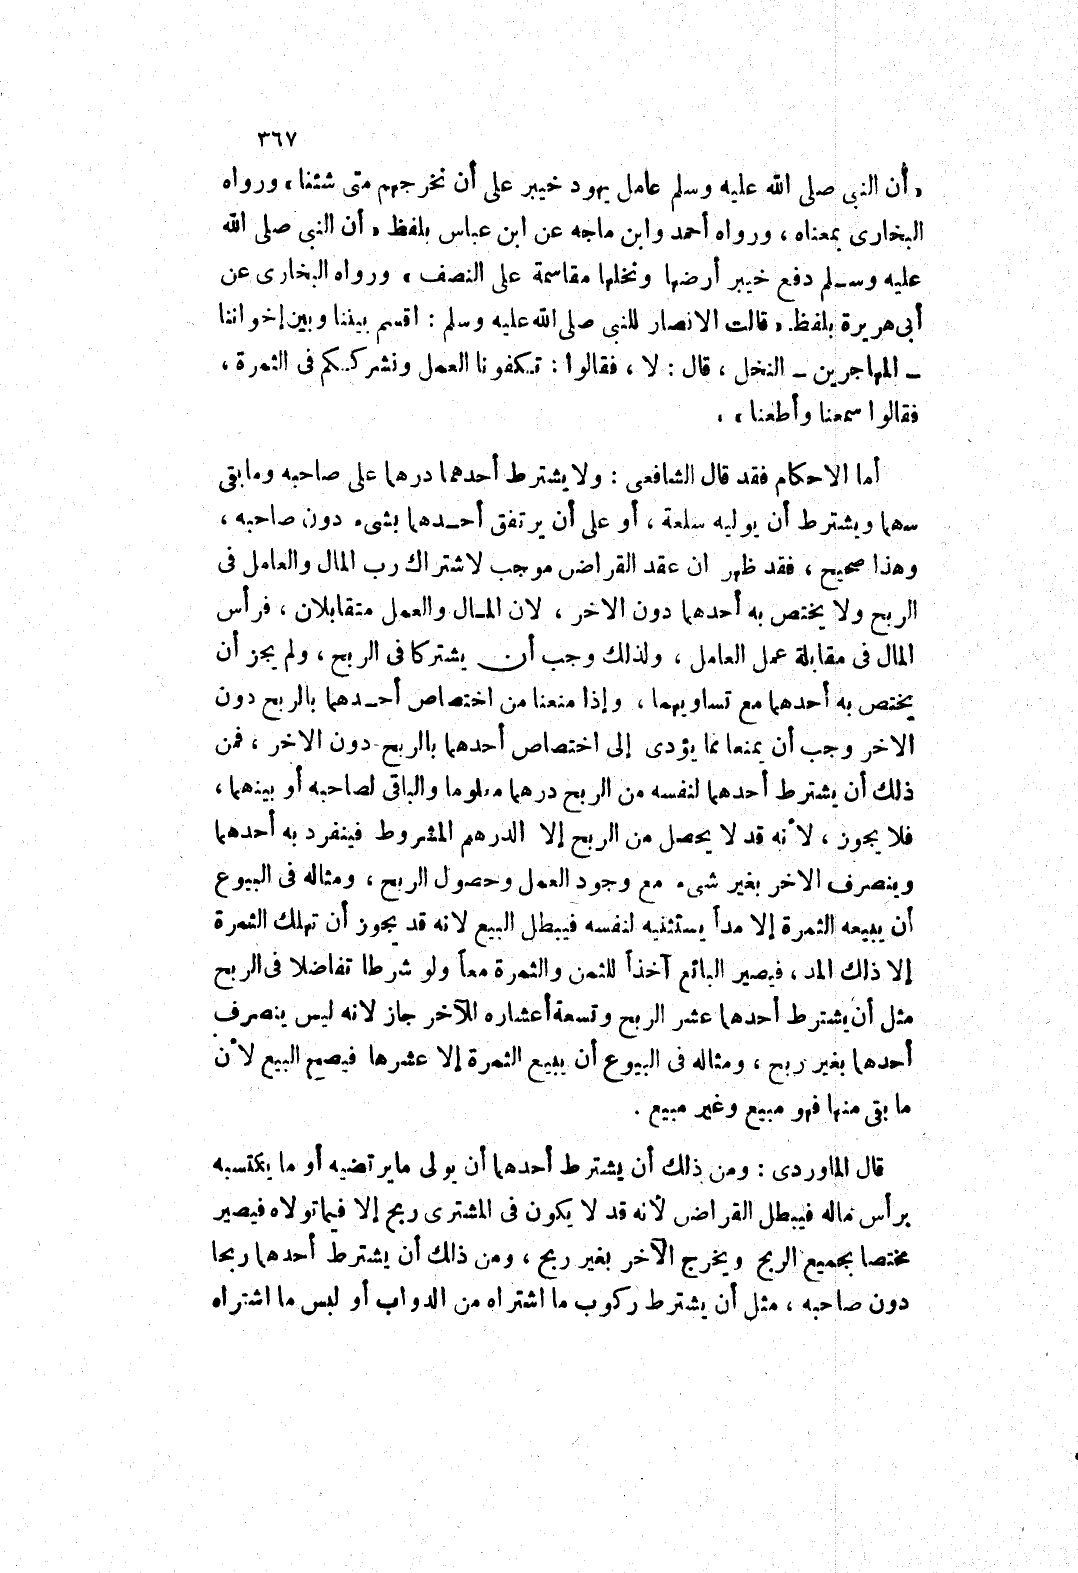 ٣٦٧
« أن النبى صلى الله عليه وسلم عامل يهود خيبر على أن نخرجهم متى شئنا » ورواه
البخارى بمعناه ، ورواه أحمد وابن ماجه عن ابن عباس بلفظ « أن النبى صلى الله
عليه وسلم دفع خيبر أرضها ونخلها مقاسمة على النصف » ورواه البخارى عن
أبى هريرة بلفظ « قالت الانصار للنبى صلى الله عليه وسلم : اقسم بيننا وبين إخواننا
ـ المهاجرين ـ النخل ، قال : لا ، فقالوا : تكفونا العمل ونشرككم فى الثمرة ،
فقالوا سمعنا وأطعنا » .
أما الاحكام فقد قال الشافعى : ولا يشترط أحدهما درهما على صاحبه وما بقى
بينهما ويشترط أن يوليه سلعة ، أو على أن يرتفق أحدهما بشىء دون صاحبه ،
وهذا صحيح ، فقد ظهر ان عقد القراض موجب لاشتراك رب المال والعامل فى
الربح ولا يختص به أحدهما دون الاخر ، لان المال والعمل متقابلان ، فرأس
المال فى مقابلة عمل العامل ، ولذلك وجب أن يشتركا فى الربح ، ولم يجز أن
يختص به أحدهما مع تساويهما ، وإذا منعنا من اختصاص أحدهما بالربح دون
الاخر وجب أن يمنعا مما يؤدى إلى اختصاص أحدهما بالربح دون الاخر ، فمن
ذلك أن يشترط أحدهما لنفسه من الربح درهما معلوما والباقى لصاحبه أو بينهما ،
فلا يجوز ، لأنه قد لا يحصل من الربح إلا الدرهم المشروط فينفرد به أحدهما
وينصرف الاخر بغير شىء مع وجود العمل وحصول الربح ، ومثاله فى البيوع
أن يبيعه الثمرة إلا مدأ يستثنيه لنفسه فيبطل البيع لانه قد يجوز أن تهلك الثمرة
إلا ذلك المد ، فيصير البائع آخذاً للثمن والثمرة معاً ولو شرطا تفاضلا فى الربح
مثل أن يشترط أحدهما عشر الربح وتسعة أعشاره للآخر جاز لانه ليس ينصرف
أحدهما بغير ربح ، ومثاله فى البيوع أن يبيع الثمرة إلا عشرها فيصح البيع لأن
ما بقى منها فهو مبيع وغير مبيع .
قال الماوردى : ومن ذلك أن يشترط أحدهما أن يولى ما يرتضيه أو ما يكتسبه
برأس ماله فيبطل القراض لأنه قد لا يكون فى المشترى ربح إلا فيما تولاه فيصير
مختصا بجميع الربح ويخرج الآخر بغير ربح ، ومن ذلك أن يشترط أحدهما ربحا
دون صاحبه ، مثل أن يشترط ركوب ما اشتراه من الدواب أو لبس ما اشتراه